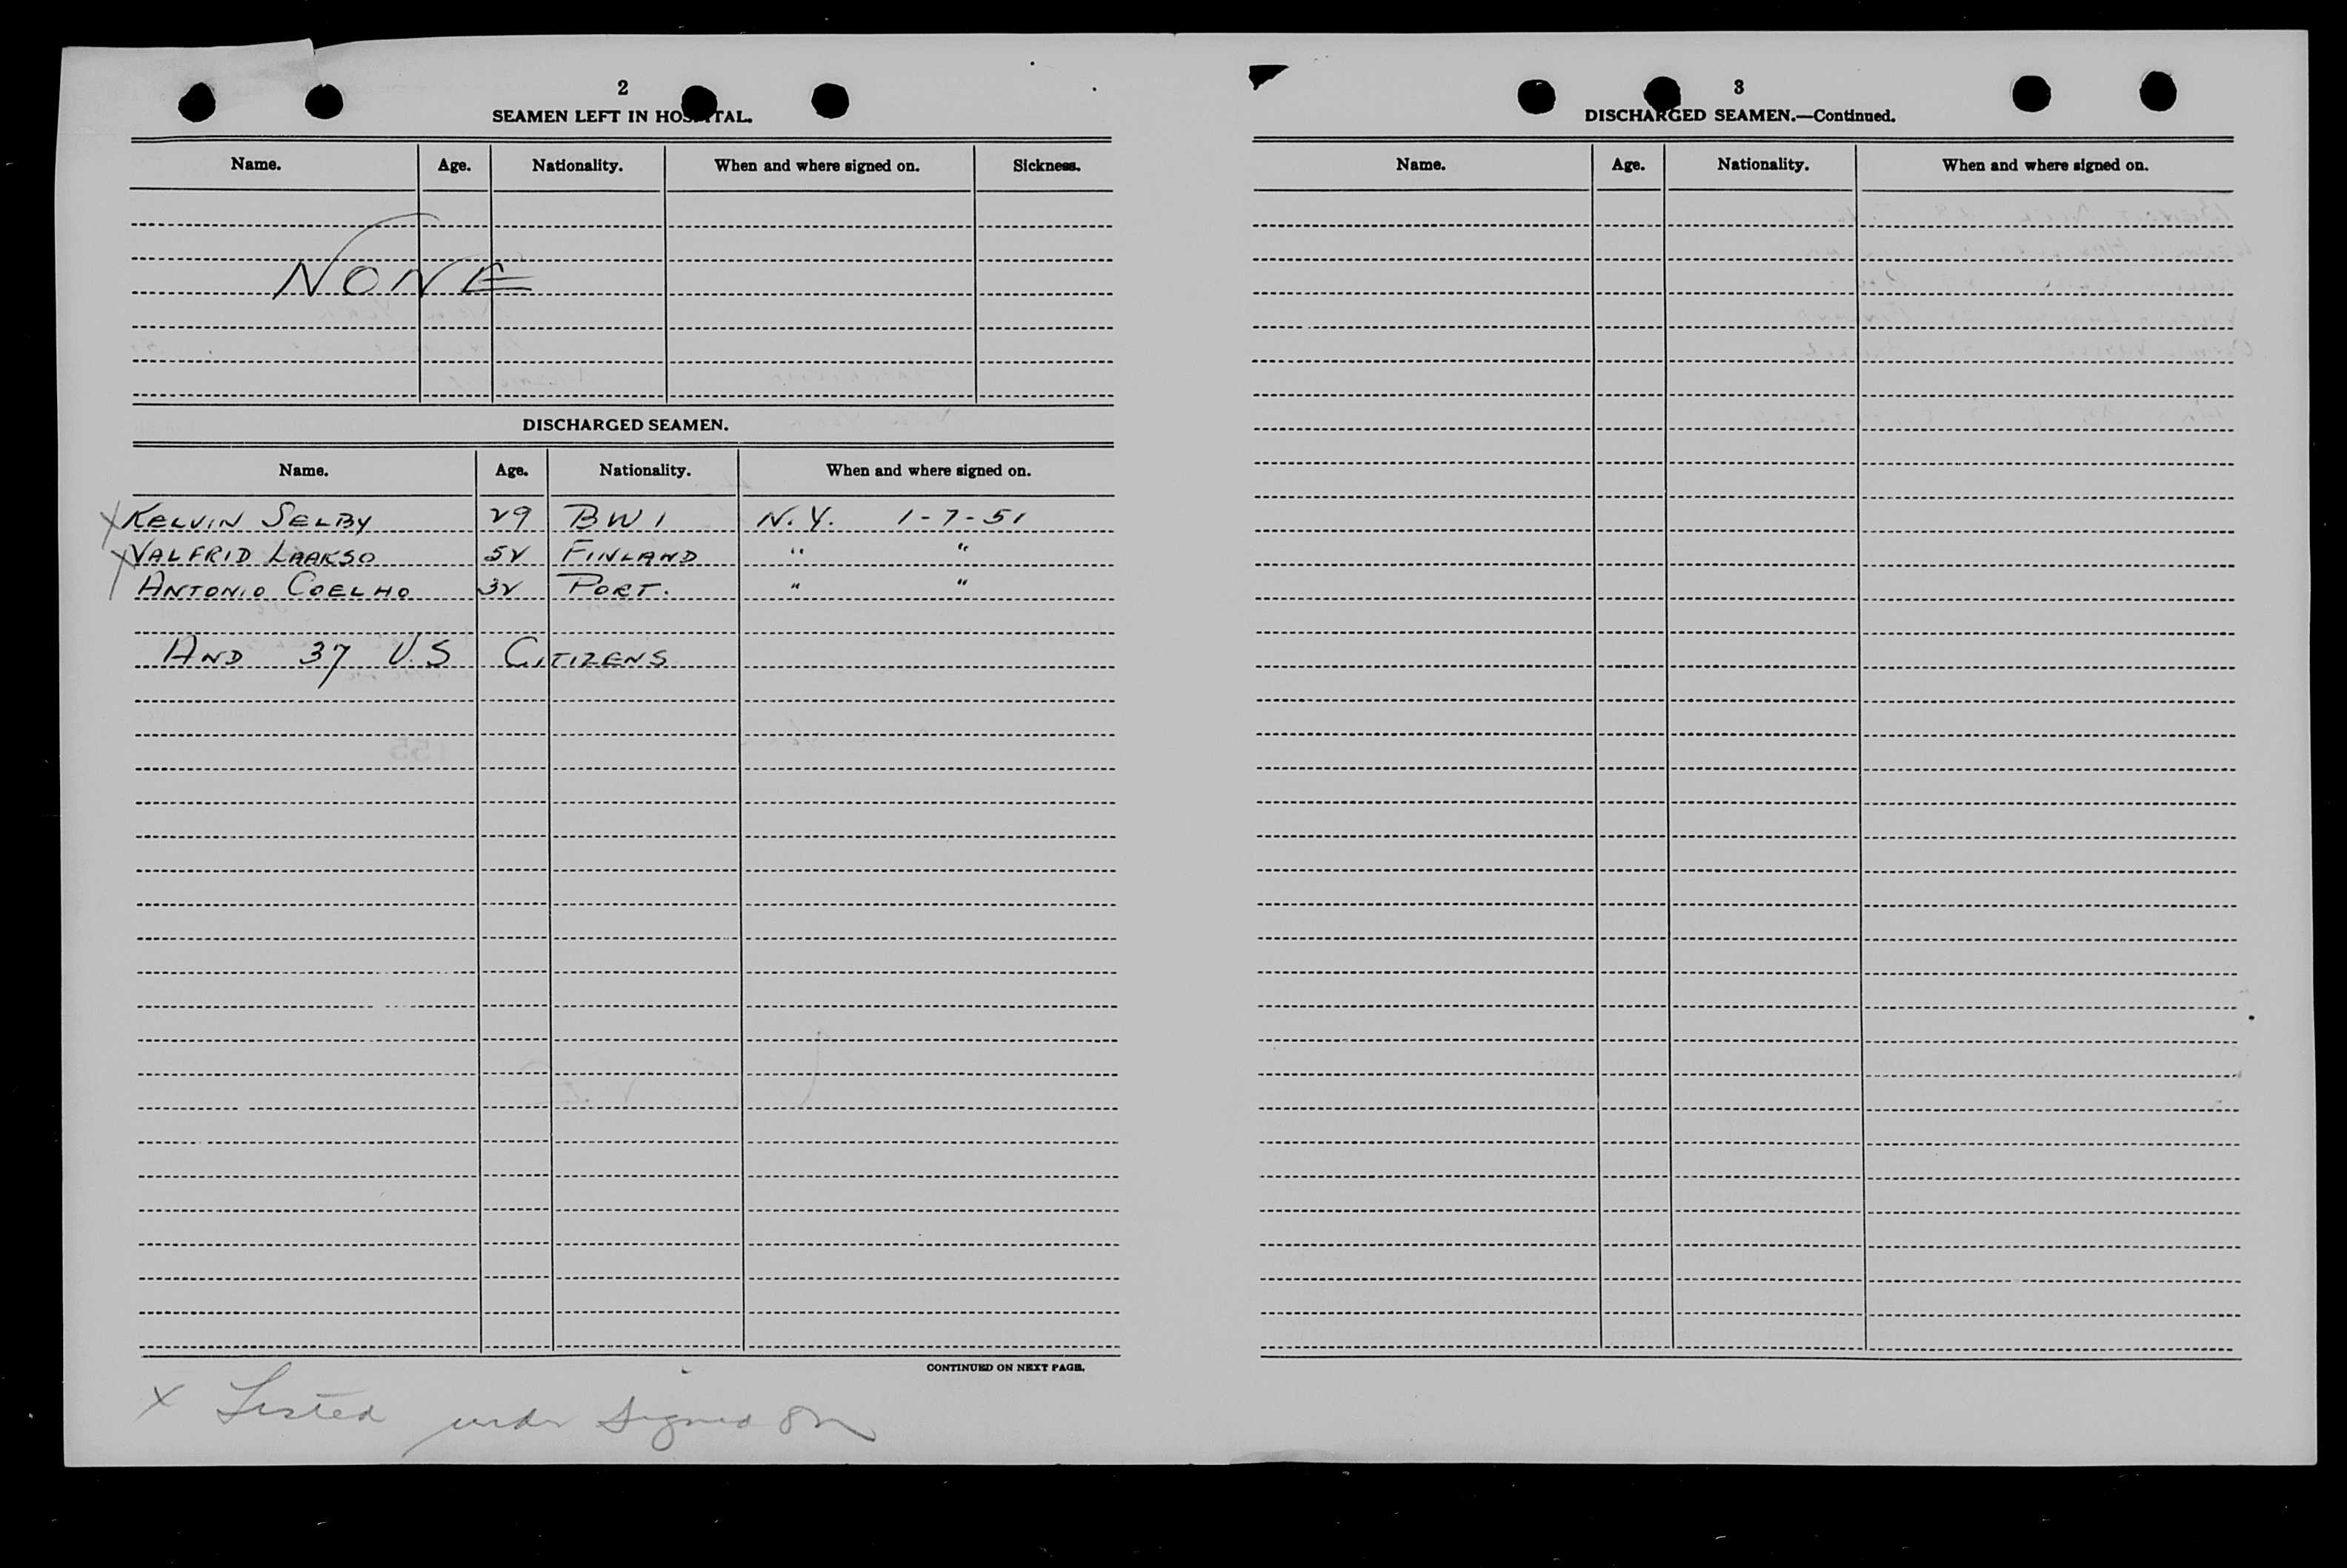 2
SEAMEN LEFT IN HOSPITAL.
Name. Age. Nationality. When and where signed on. Sickness.
NONE
DISCHARGED SEAMEN.
Name. Age. Nationality. When and where signed on.
X KELVIN SELBY 29 BWI N.Y. 1-7-51
X VALFRID LAAKSO 52 FINLAND " "
ANTONIO COELHO 32 PORT. " "
AND 37 U.S CITIZENS
CONTINUED ON NEXT PAGE.
X Listed under signed on
3
DISCHARGED SEAMEN.—Continued.
Name. Age. Nationality. When and where signed on.